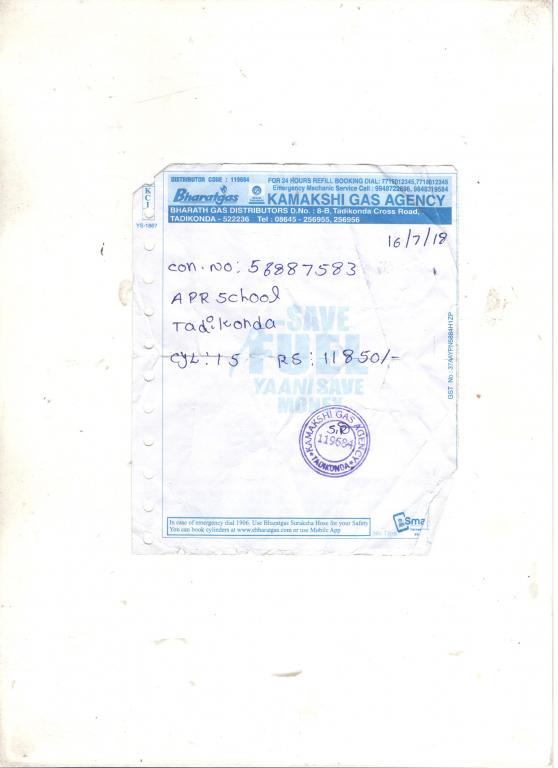 DISTRIBUTOR CODE : 119684
FOR 24 HOURS REFILL BOOKING DIAL: 7715012345,7718012345
Emergency Mechanic Service Call : 9848722696, 9848319584
Bharatgas
KAMAKSHI GAS AGENCY
BHARATH GAS DISTRIBUTORS D.No. : 8-B, Tadikonda Cross Road,
TADIKONDA - 522236 Tel : 08645 - 256955, 256956
KCI
YS-1867
16/7/18
con.no: 56887583
APR School
Tadikonda
cyl: 15 RS: 11850/-
SAVE
FUEL
YAANI SAVE
MONEY
KAMAKSHI GAS AGENCY
119684
TADIKONDA
In case of emergency dial 1906. Use Bharatgas Suraksha Hose for your Safety
You can book cylinders at www.ebharatgas.com or use Mobile App
Sma